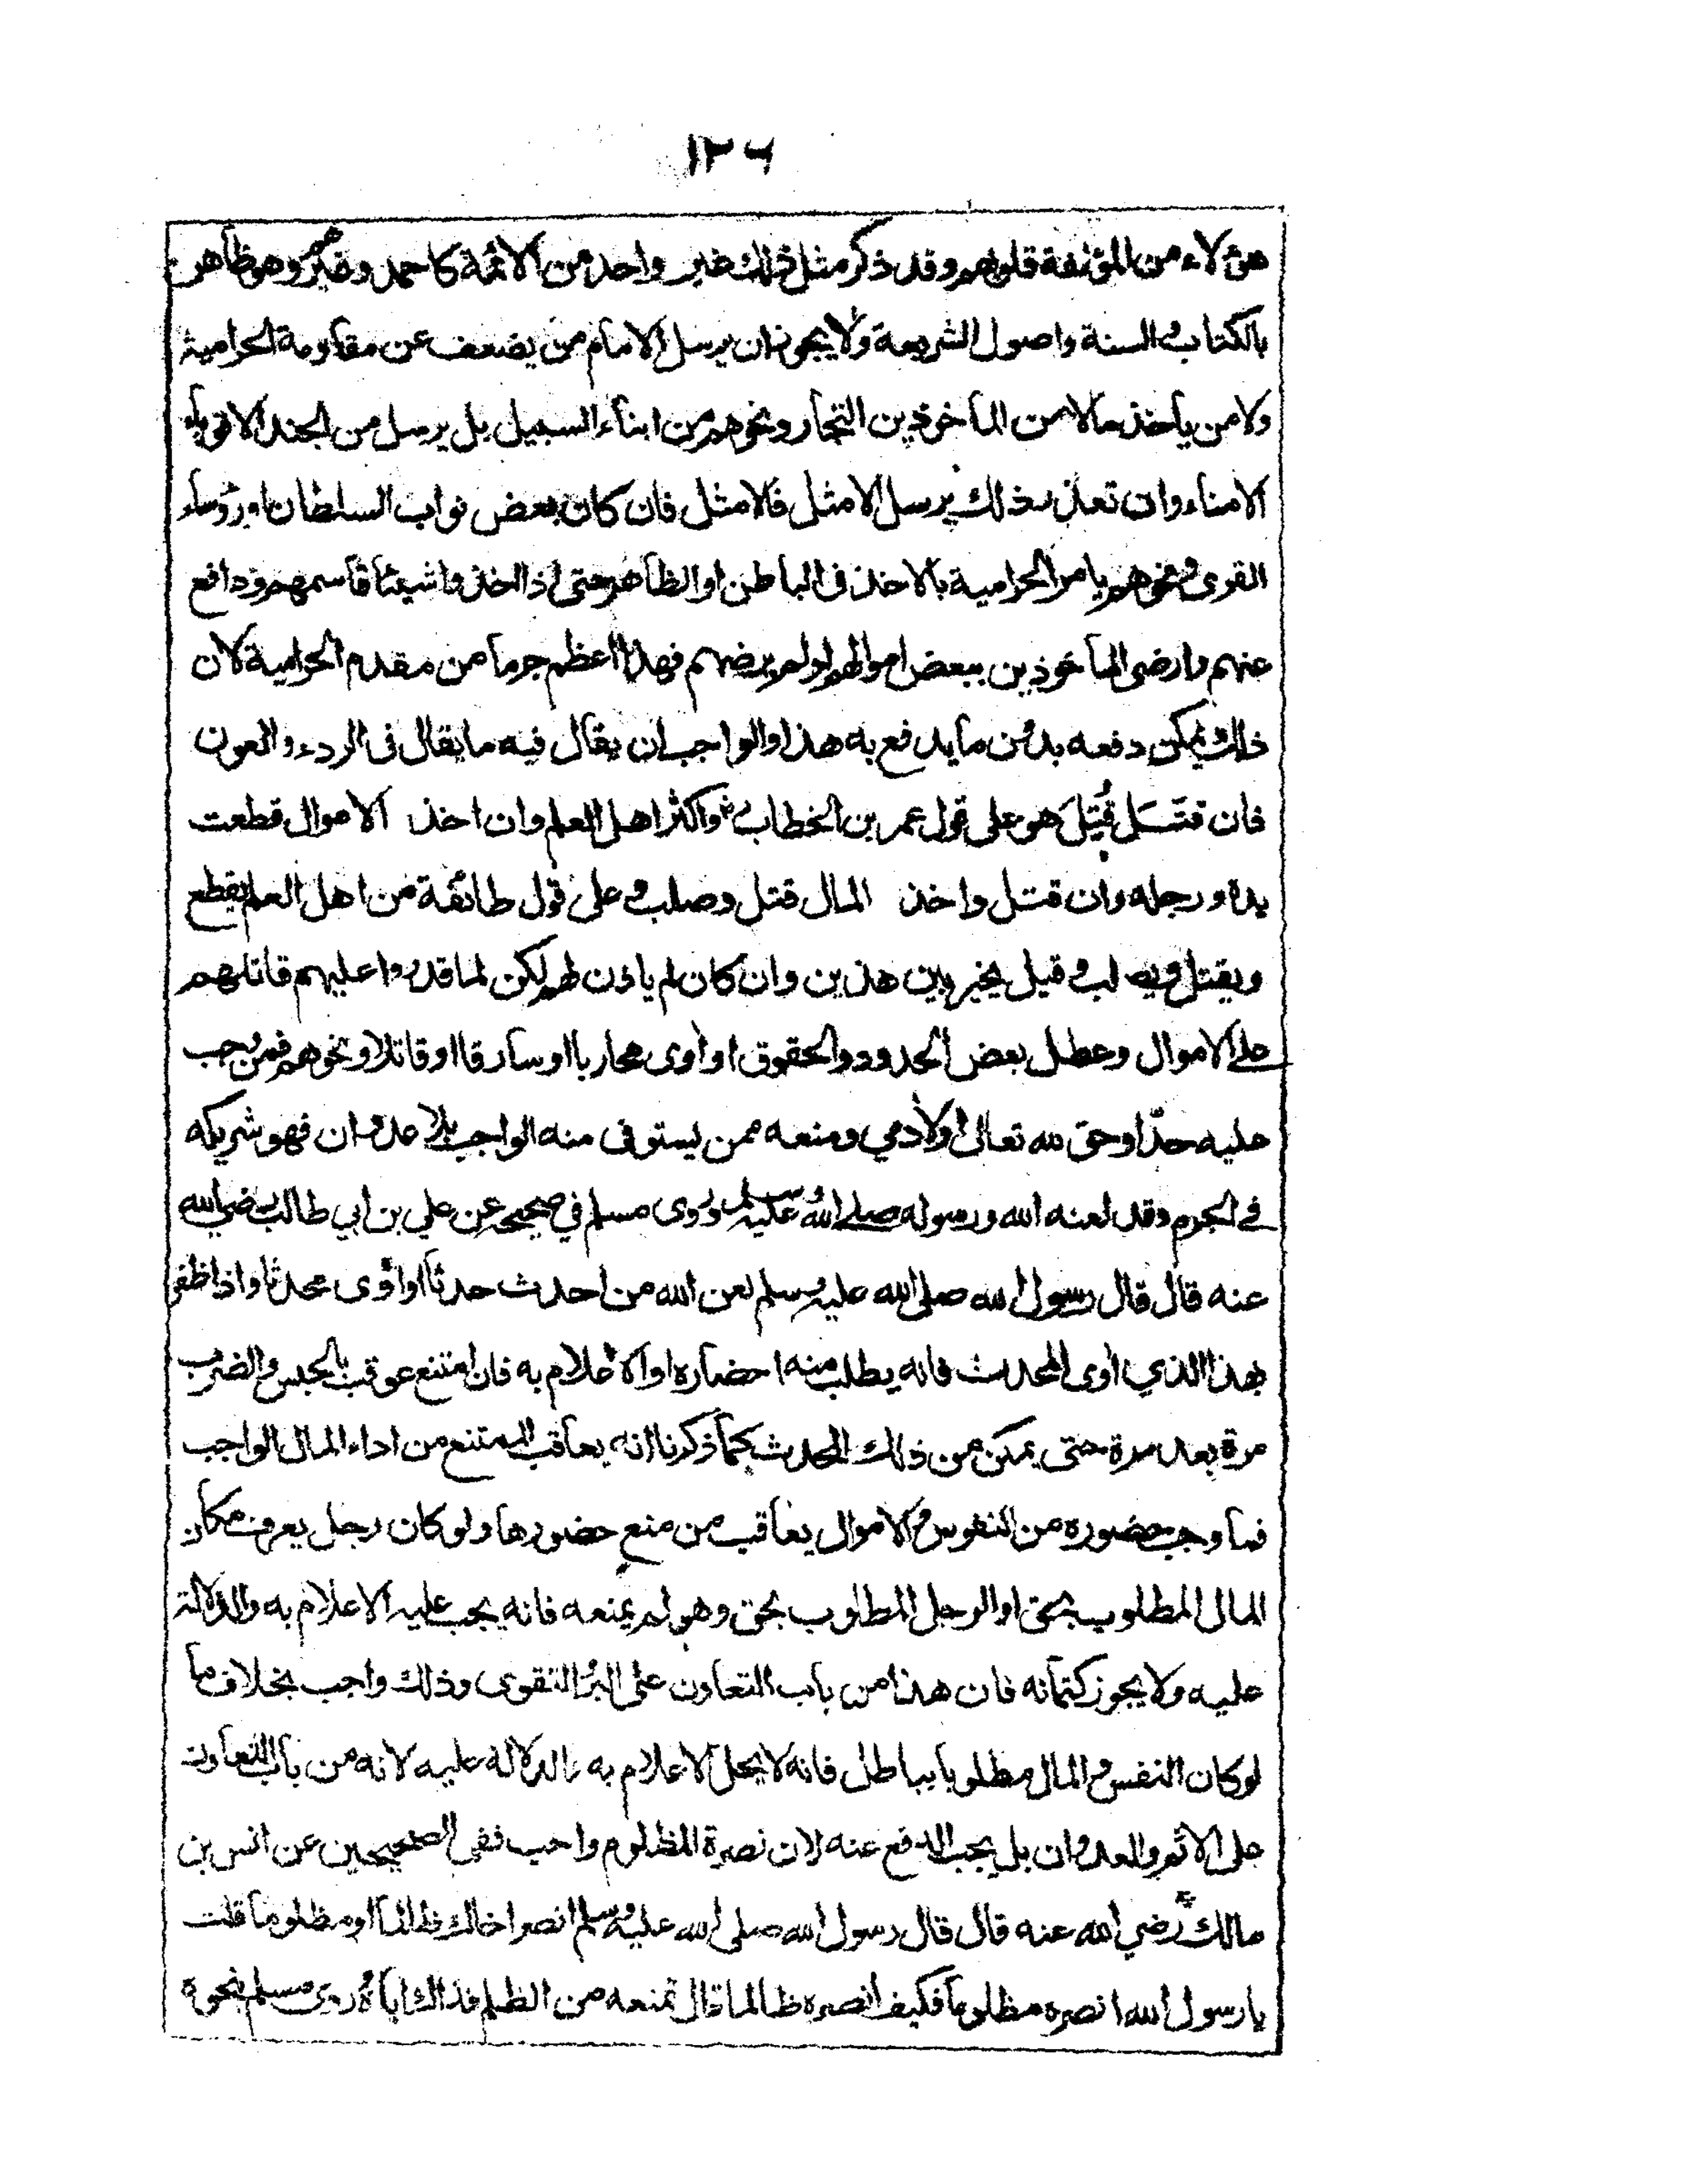 ١٢٦
هؤلاء من المؤلفة قلوبهم وقد ذكر مثل ذلك غير واحد من الائمة كاحمد وغيره وهو ظاهر
بالكتاب والسنة واصول الشريعة ولا يجوز ان يرسل الامام من يضعف عن مقاومة الحرامية
ولا من يأخذ مالا من المأخوذين التجار ونحوهم من ابناء السبيل بل يرسل من الجند الاقوياء
الامناء وان تعذر ذلك يرسل الامثل فالامثل فان كان بعض نواب السلطان او رؤساء
القرى ونحوهم يامر الحرامية بالاخذ في الباطن او الظاهر حتى اذا اخذوا شيئا قاسمهم ودافع
عنهم وارضى المأخوذين ببعض اموالهم او لم يرضهم فهذا اعظم جرما من مقدم الحرامية لان
ذلك يمكن دفعه بدون ما يدفع به هذا والواجب ان يقال فيه ما يقال في الردء والعون
فان قتل قُتِلَ هو على قول عمر بن الخطاب رض واكثر اهل العلم وان اخذ الاموال قطعت
يده ورجله وان قتل واخذ المال قتل وصلب وعلى قول طائفة من اهل العلم يقطع
ويقتل ويصلب وقيل يخير بين هذين وان كان لم ياذن لهم لكن لما قدروا عليهم قاتلهم
على الاموال وعطل بعض الحدود والحقوق او آوى محاربا او سارقا او قاتلا ونحوهم فمن يجب
عليه حدّ او حق لله تعالى او لادمي ومنعه ممن يستوفى منه الواجب بلا عدوان فهو شريكه
في الجرم وقد لعنه الله ورسوله صلى الله عليه وسلم وروى مسلم في صحيحه عن علي بن ابي طالب رضي الله
عنه قال قال رسول الله صلى الله عليه وسلم لعن الله من احدث حدثا او آوى محدثا واذا ظفر
بهذا الذي آوى المحدث فانه يطلب منه احضاره او الاعلام به فان امتنع عوقب بالحبس والضرب
مرة بعد مرة حتى يمكن من ذلك المحدث كما ذكرنا انه يعاقب الممتنع من اداء المال الواجب
فما وجب حضوره من النفوس والاموال يعاقب من منع حضورها ولو كان رجل يعرف مكان
المال المطلوب بحق او الرجل المطلوب بحق وهو لم يمنعه فانه يجب عليه الاعلام به والدلالة
عليه ولا يجوز كتمانه فان هذا من باب التعاون على البر والتقوى وذلك واجب بخلاف ما
لو كان النفس والمال مطلوبا بباطل فانه لا يحل الاعلام به والدلالة عليه لانه من باب التعاون
على الاثم والعدوان بل يجب الدفع عنه لان نصرة المظلوم واجب ففى الصحيحين عن انس بن
مالك رضي الله عنه قال قال رسول الله صلى الله عليه وسلم انصر اخاك ظالما او مظلوما قلت
يا رسول الله انصره مظلوما فكيف انصره ظالما قال تمنعه من الظلم فذاك اياه وروى مسلم نحوه